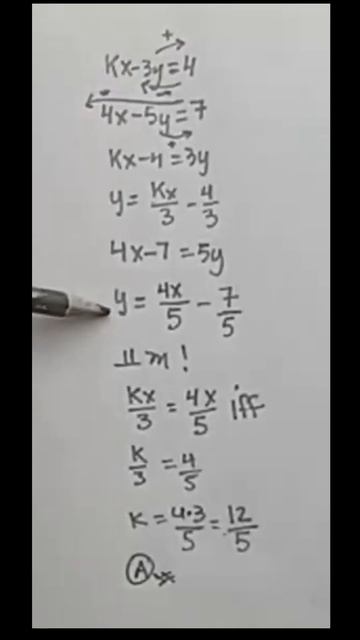 +
Kx-3y=4
4x-5y=7
Kx-4=3y
y=Kx/3-4/3
4x-7=5y
y=4x/5-7/5
m!
Kx/3=4x/5 iff
K/3=4/5
K=4·3/5=12/5
A